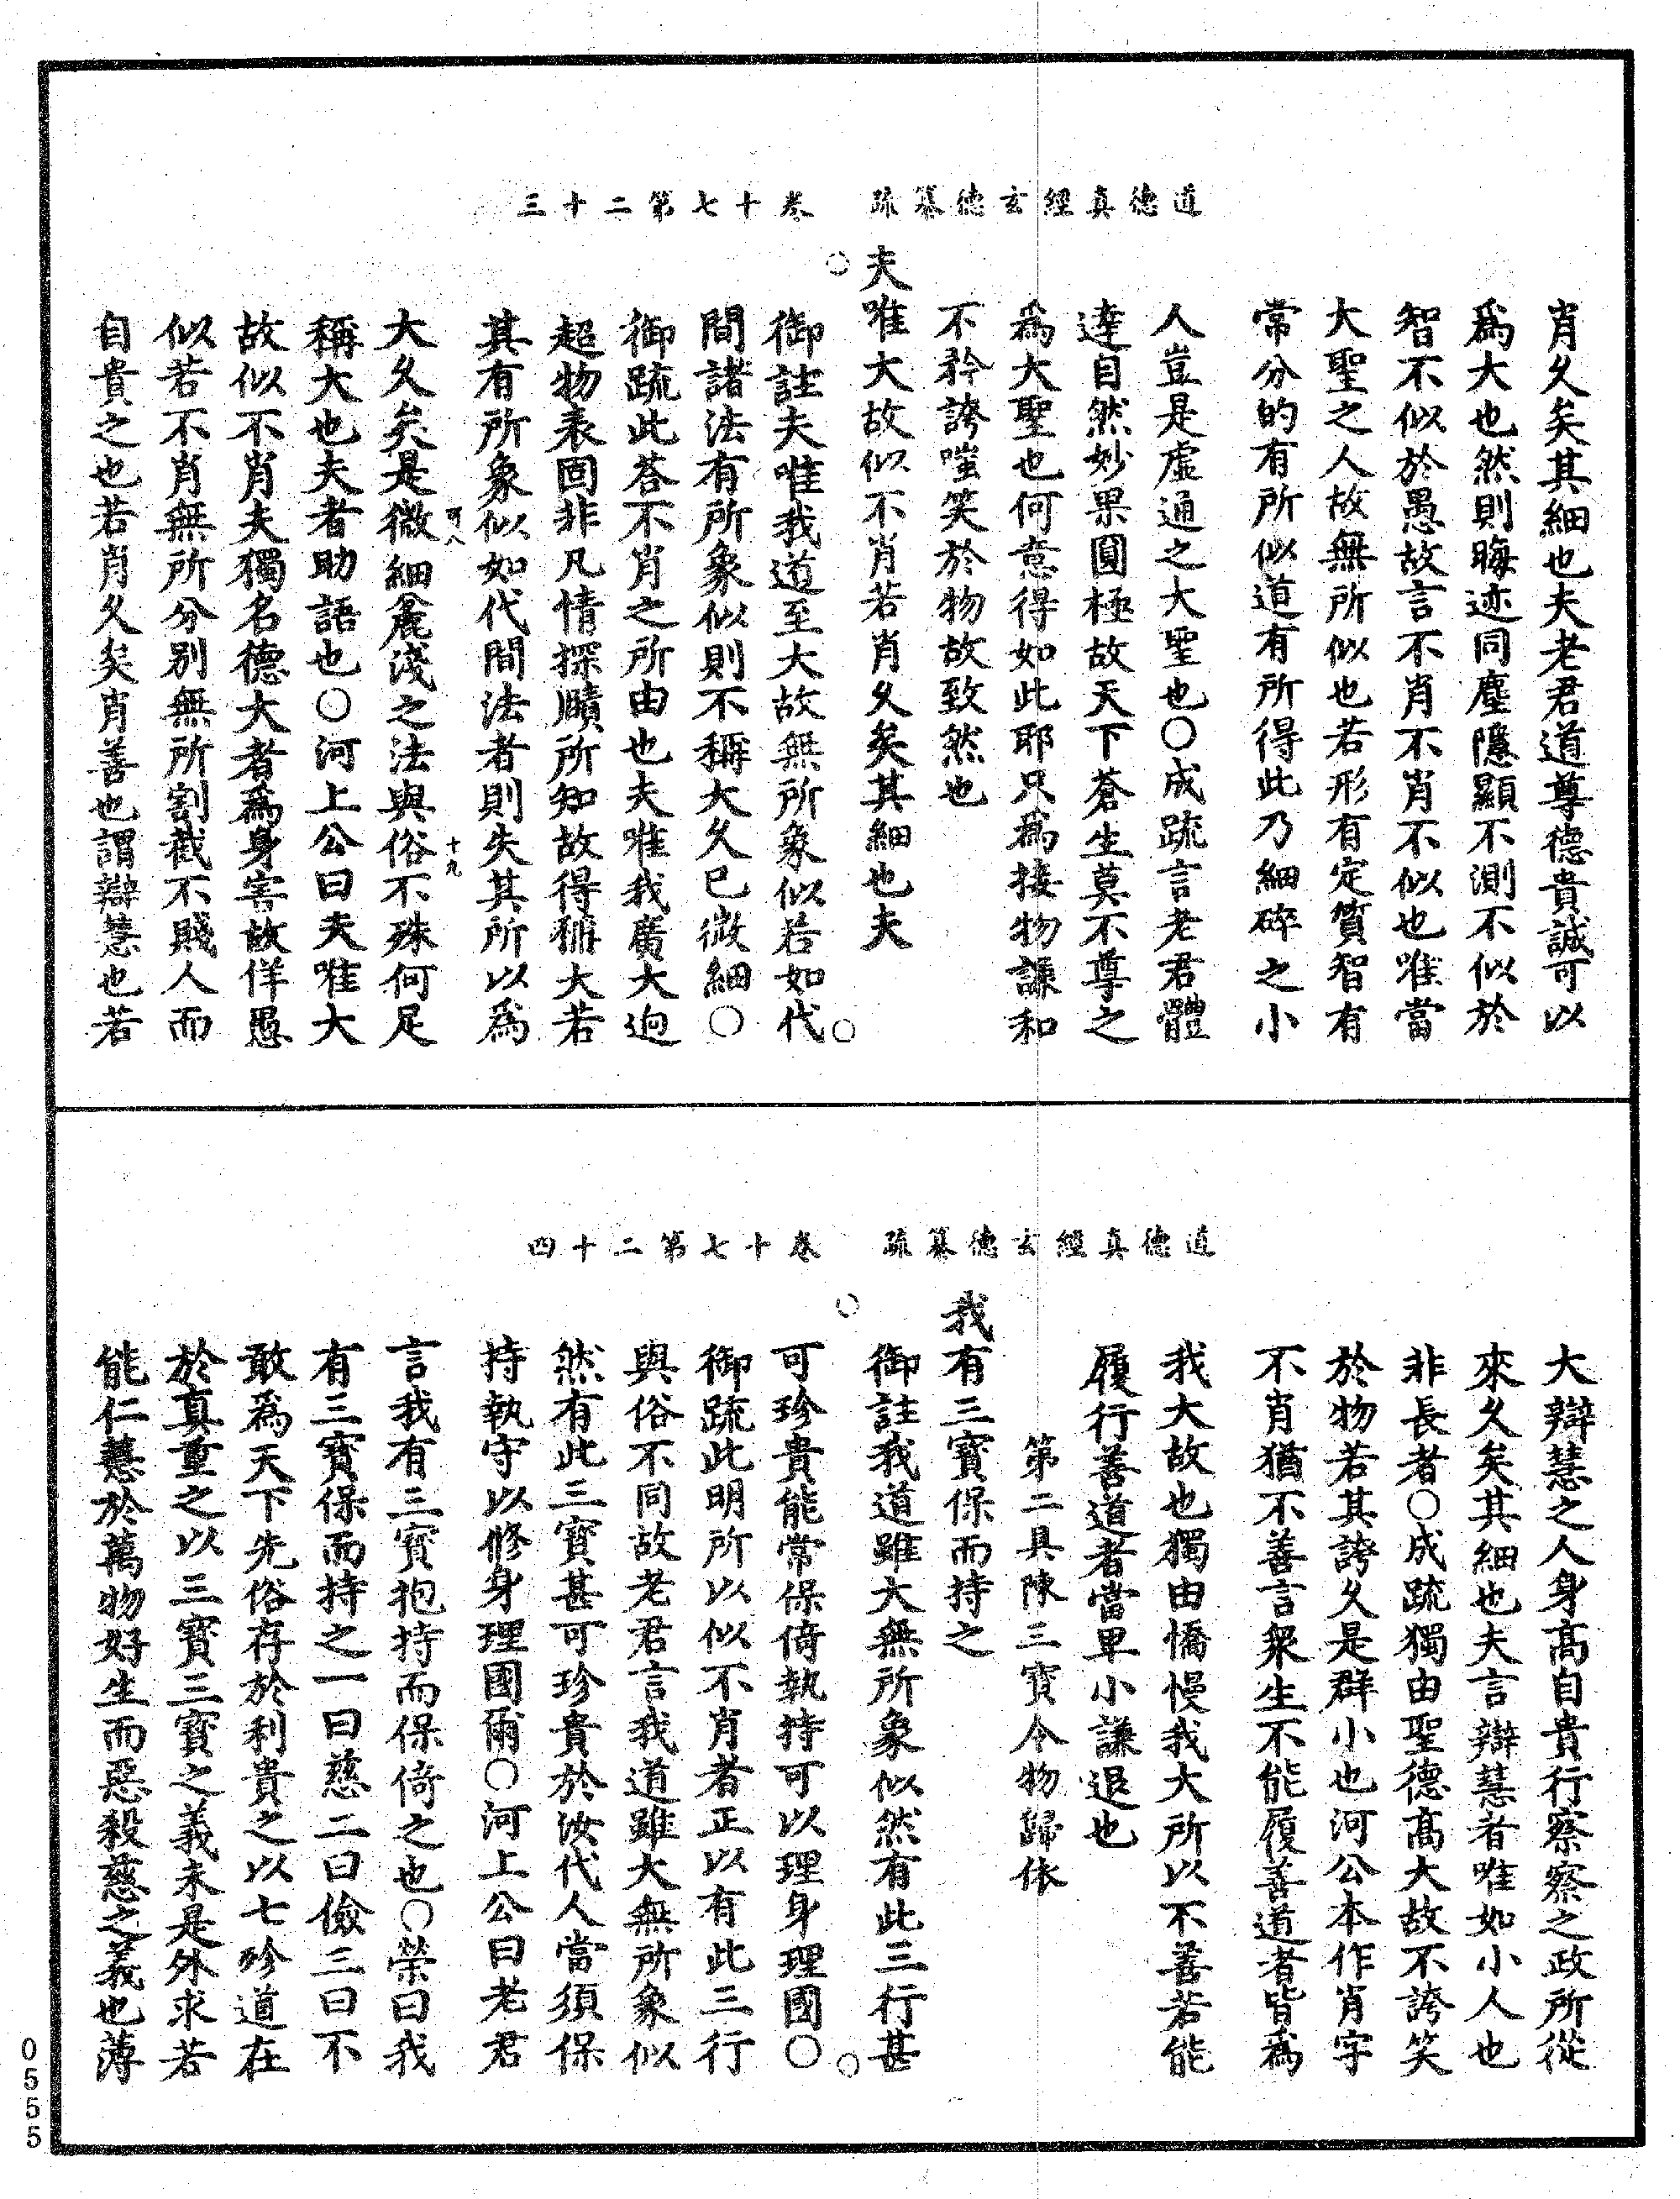 道德真經玄德纂疏　卷十七第二十三
肖久矣其細也夫老君道尊德貴誠可以
爲大也然則晦迹同塵隱顯不測不似於
智不似於愚故言不肖不肖不似也唯當
大聖之人故無所似也若形有定質智有
常分的有所似道有所得此乃細碎之小
人豈是虛通之大聖也○成疏言老君體
達自然妙果圓極故天下蒼生莫不尊之
爲大聖也何意得如此耶只爲接物謙和
不矜誇嗤笑於物故致然也
夫唯大故似不肖若肖久矣其細也夫
御註夫唯我道至大故無所象似若如代
間諸法有所象似則不稱大久已微細○
御疏此荅不肖之所由也夫唯我廣大迥
超物表固非凡情探賾所知故得稱大若
其有所象似如代間法者則失其所以爲
可八　十九
大久矣是微細麄淺之法與俗不殊何足
稱大也夫者助語也○河上公曰夫唯大
故似不肖夫獨名德大者爲身害故佯愚
似若不肖無所分別無所割截不賤人而
自貴之也若肖久矣肖善也謂辯慧也若
道德真經玄德纂疏　卷十七第二十四
大辯慧之人身高自貴行察察之政所從
來久矣其細也夫言辯慧者唯如小人也
非長者○成疏獨由聖德高大故不誇笑
於物若其誇久是群小也河公本作肖字
不肖猶不善言衆生不能履善道者皆爲
我大故也獨由憍慢我大所以不善若能
履行善道者當卑小謙退也
第二具陳三寶令物歸依
我有三寶保而持之
御註我道雖大無所象似然有此三行甚
可珍貴能常保倚執持可以理身理國○
御疏此明所以似不肖者正以有此三行
與俗不同故老君言我道雖大無所象似
然有此三寶甚可珍貴於汝代人當須保
持執守以修身理國爾○河上公曰老君
言我有三寶抱持而保倚之也○榮曰我
有三寶保而持之一曰慈二曰儉三曰不
敢爲天下先俗存於利貴之以七珍道在
於真重之以三寶三寶之義未是外求若
能仁慧於萬物好生而惡殺慈之義也薄
0555